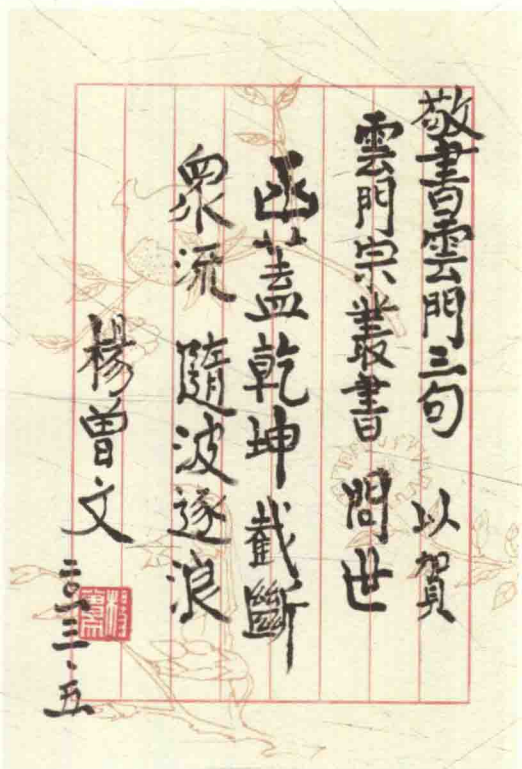 敬書雲門三句 以賀
雲門宗叢書 問世
函蓋乾坤 截斷
衆流 隨波逐浪
楊曾文
二〇一三·五